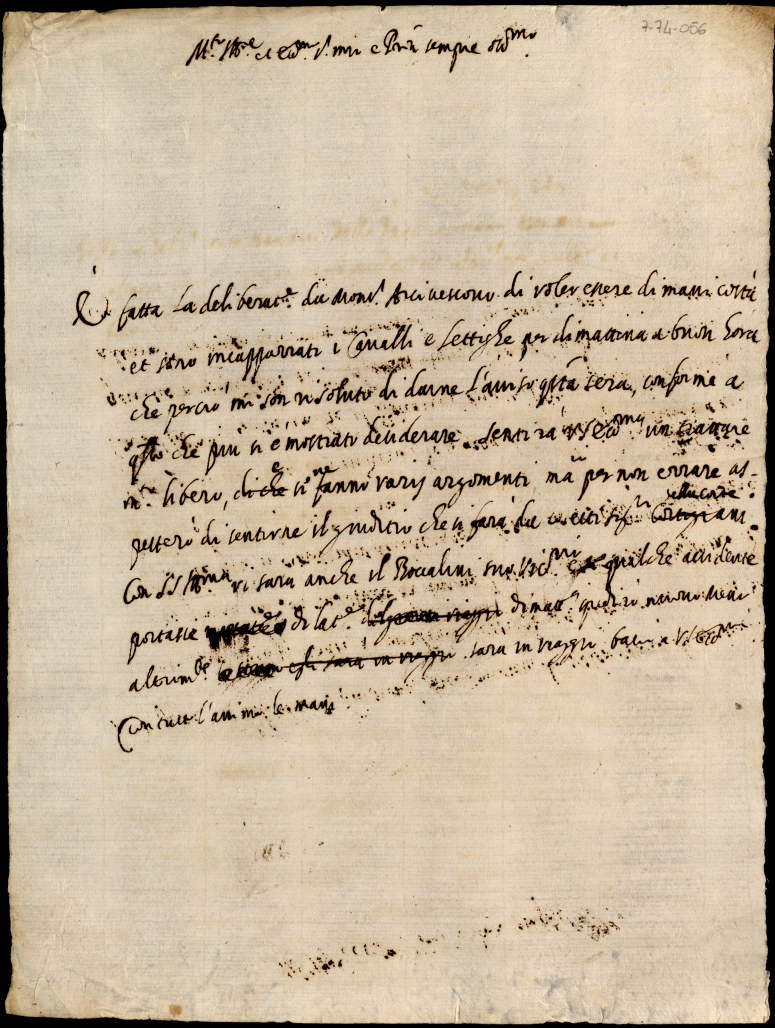 7-74-056
M.to Ill.re et Ecc.mo S.r mio e Pron sempre oss.mo
È fatta la deliberat.e da Mons.r Arcivescovo di voler essere dimani costà
et sono incapparrati i Cavalli e lettighe per dimattina a buon hora
che perciò mi son risoluto di darne l'aviso q.sta sera, conforme a
q.llo che più si è mostrato desiderare. Sentirà VS Ecc.ma un trattare
libero, di che se ne fanno varij argomenti, mà per non errare as-
petterò di sentirne il giuditio che si farà da
Con SS Ill.ma vi sarà anche il Boccalini suo qualche accidente
portasse di lat.e dimat.a
altrim.te egli sarà in viaggio sarà in viaggio. bacio a VS Ecc.ma
Con tutto l'animo le mani